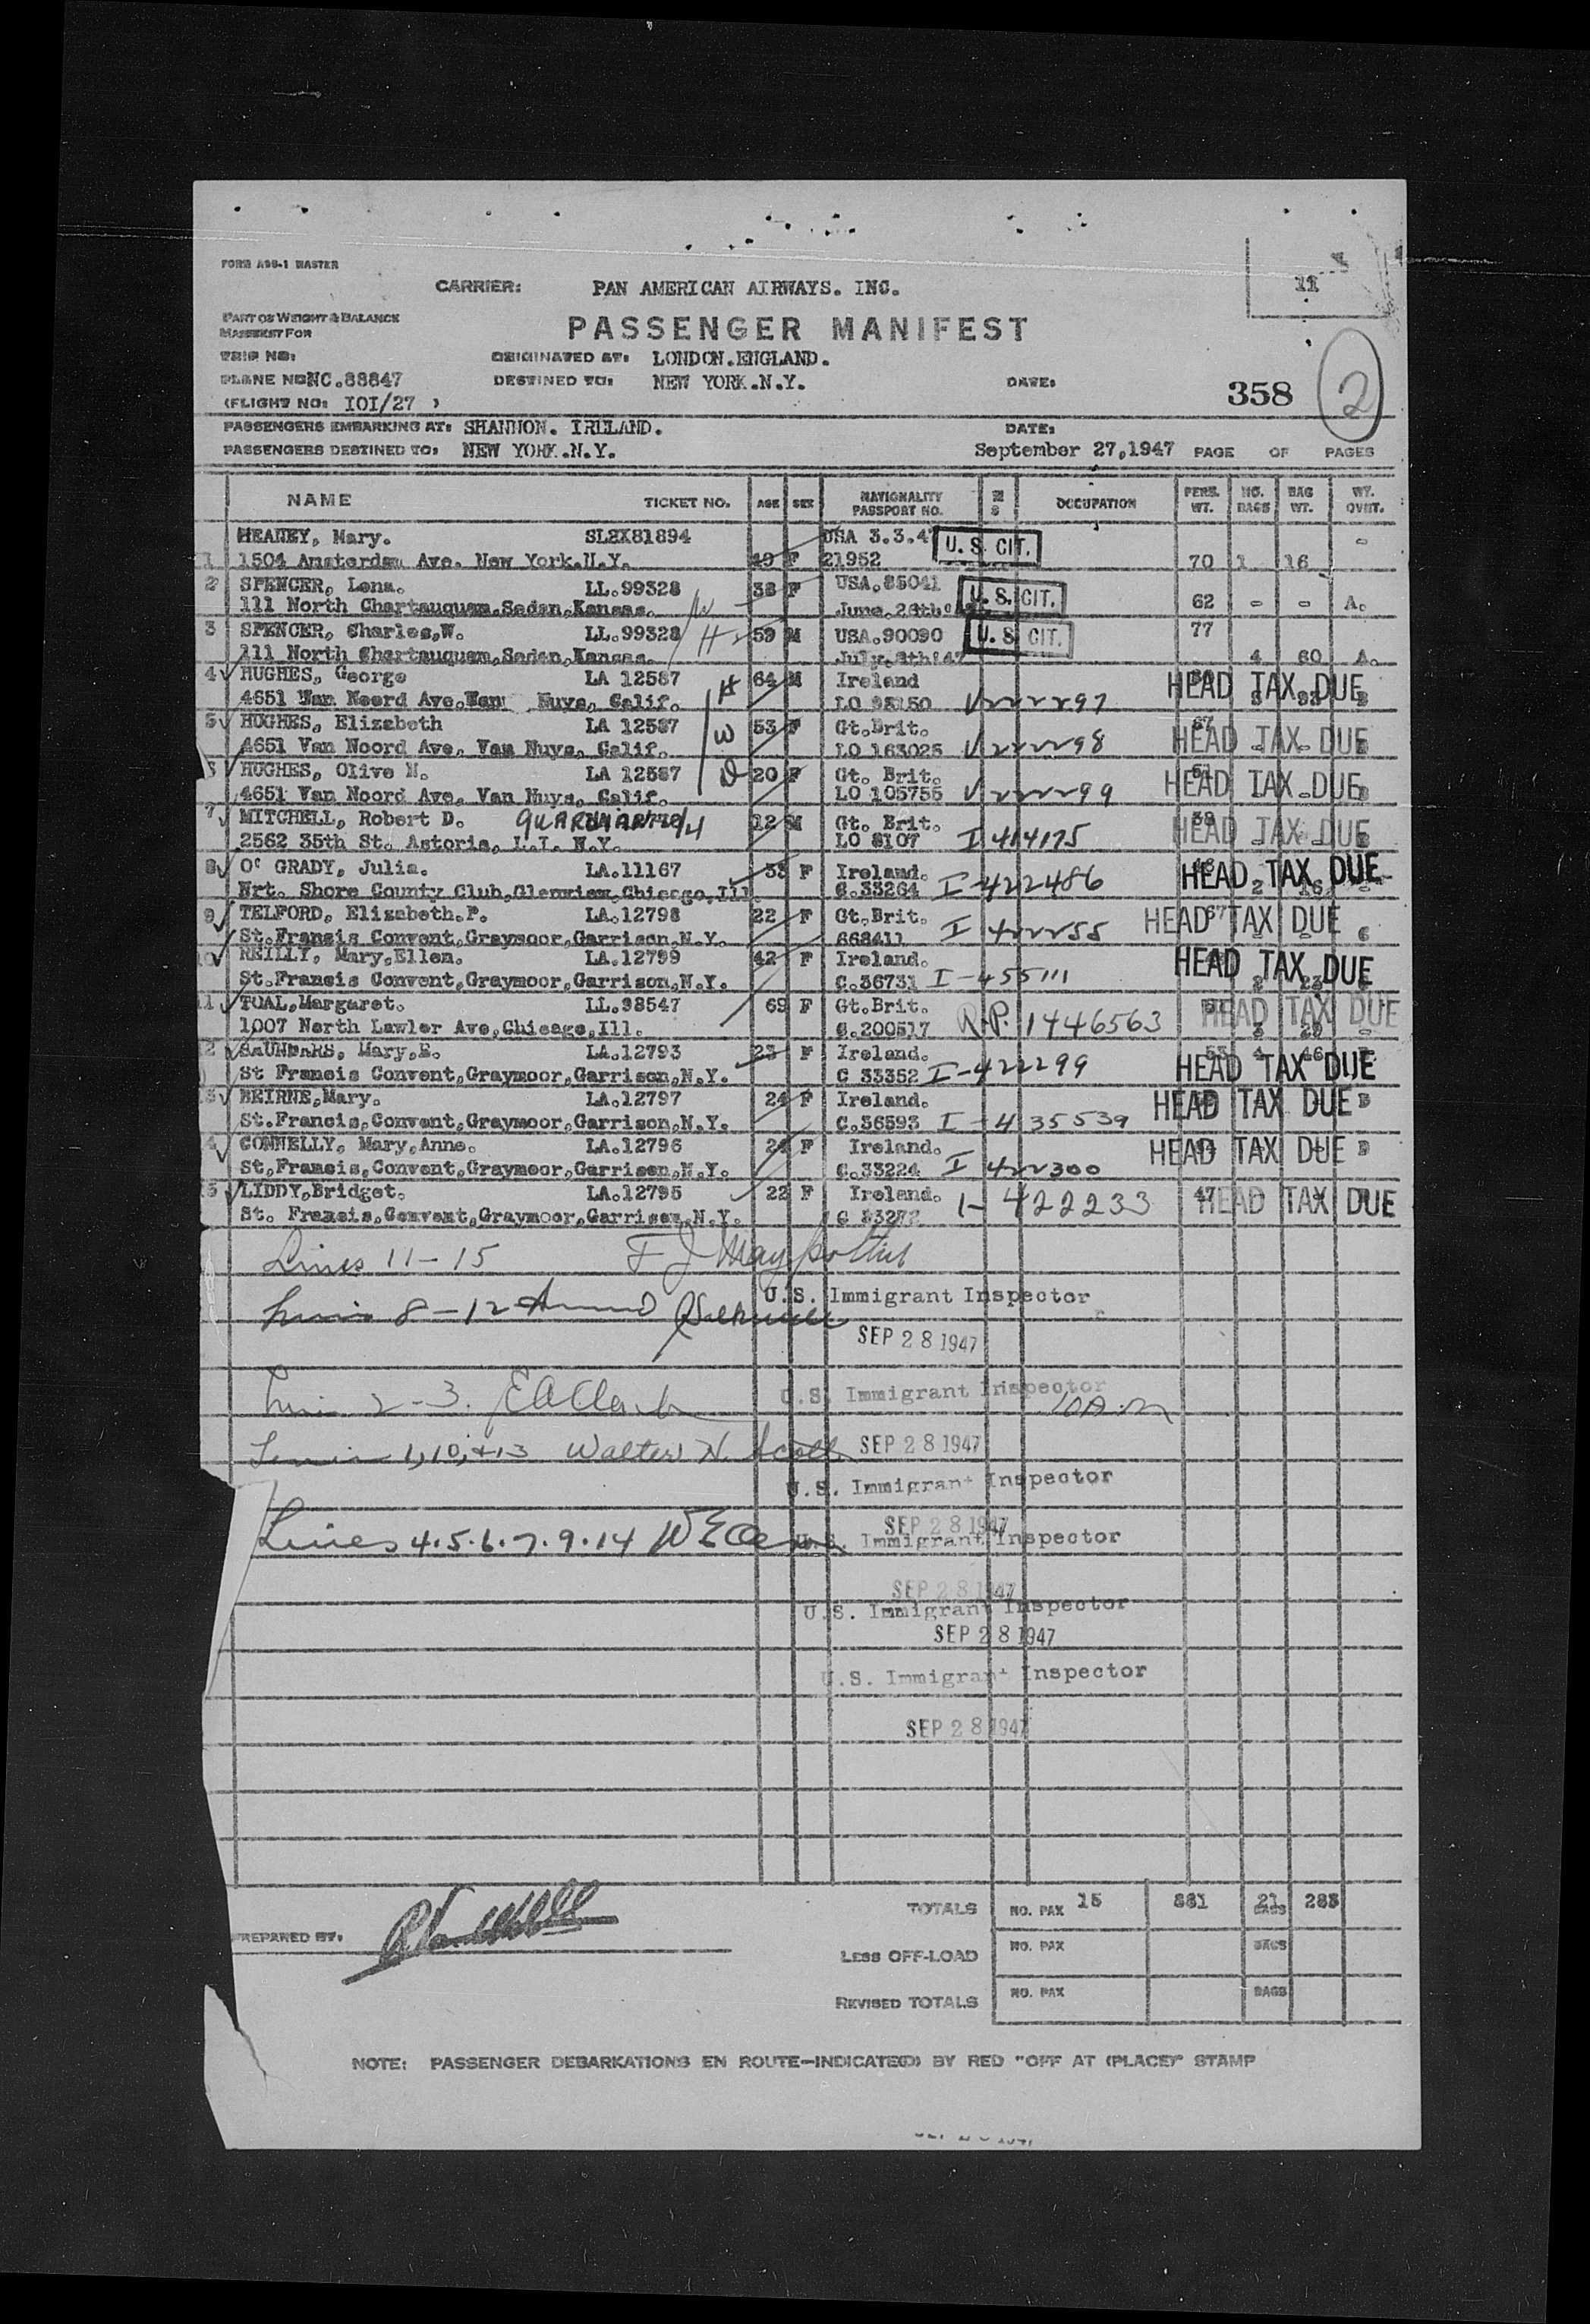 FORM A98-1 MASTER
11
CARRIER: PAN AMERICAN AIRWAYS. INC.
PART OF WEIGHT & BALANCE
MANIFEST FOR
PASSENGER MANIFEST
TRIP NO: ORIGINATED AT: LONDON.ENGLAND.
PLANE NO NC.88847 DESTINED TO: NEW YORK.N.Y. DATE: 358 2
(FLIGHT NO: IOI/27 )
PASSENGERS EMBARKING AT: SHANNON. IRELAND. DATE:
PASSENGERS DESTINED TO: NEW YORK.N.Y. September 27,1947 PAGE OF PAGES
NAME TICKET NO. AGE SEX NATIONALITY PASSPORT NO. M S OCCUPATION PERS. WT. NO. BAGS BAG WT. WT. OVWT.
HEANEY, Mary. SL2X81894 USA 3.3.47 U.S. CIT. -
1 1504 Amsterdam Ave. New York.N.Y. 49 F 21952 70 1 16
2 SPENCER, Lena. LL.99328 38 F USA.85041 U.S. CIT.
111 North Chartauquam,Sedan,Kansas. W June.26th 62 - - A.
3 SPENCER, Charles,W. LL.99328 H 59 M USA.90090 U.S. CIT. 77
111 North Chartauquam,Sedan,Kansas. July.8th'47 4 60 A.
4 HUGHES, George LA 12587 H 64 M Ireland HEAD TAX DUE
4651 Van Noord Ave.Van Nuys, Calif. LO 98150 V222297
5 HUGHES, Elizabeth LA 12587 W 53 F Gt.Brit. 67 HEAD TAX DUE
4651 Van Noord Ave, Van Nuys, Calif. LO 163025 V222298
HUGHES, Olive M. LA 12587 D 20 F Gt. Brit. HEAD TAX DUE
4651 Van Noord Ave, Van Nuys, Calif. LO 105755 V222299
7 MITCHELL, Robert D. 12 M Gt. Brit. 39 HEAD TAX DUE
2562 35th St. Astoria, L.I. N.Y. LO 8107 I 414175
8 O' GRADY, Julia. LA.11167 33 F Ireland. HEAD TAX DUE
Nrt. Shore County Club,Glenview,Chicago,Ill. C.33264 I-422486 2 16
9 TELFORD, Elizabeth.P. LA.12798 22 F Gt.Brit. HEAD TAX DUE
St.Francis Convent,Graymoor,Garrison,N.Y. 668411 I 422255
10 REILLY, Mary,Ellen. LA.12799 42 F Ireland. HEAD TAX DUE
St.Francis Convent,Graymoor,Garrison,N.Y. C.36731 I-455111
11 TOAL,Margaret. LL.98547 69 F Gt.Brit. HEAD TAX DUE
1007 North Lawler Ave,Chicago,Ill. C.200517 R.P. 1446563 29
12 SAUNDARS, Mary,E. LA.12793 23 F Ireland. 53 4 46
St Francis Convent,Graymoor,Garrison,N.Y. C 33352 I-422299 HEAD TAX DUE
13 BEIRNE,Mary. LA.12797 24 F Ireland. HEAD TAX DUE
St.Francis,Convent,Graymoor,Garrison,N.Y. C.36593 I-435539
14 CONNELLY, Mary,Anne. LA.12796 24 F Ireland. HEAD TAX DUE
St,Francis,Convent,Graymoor,Garrison,N.Y. C.33224 I 422300
15 LIDDY,Bridget. LA.12795 22 F Ireland. 47 HEAD TAX DUE
St. Francis,Convent,Graymoor,Garrison,N.Y. I-422233
Lines 11-15
U.S. Immigrant Inspector
Lines 8-12
SEP 28 1947
U.S. Immigrant Inspector
Lines 2-3.
Lines 1,10,+13 Walter N. Scott SEP 28 1947
U.S. Immigrant Inspector
SEP 28 1947
Lines 4.5.6.7.9.14 U.S. Immigrant Inspector
SEP 28 1947
U.S. Immigrant Inspector
SEP 28 1947
U.S. Immigrant Inspector
SEP 28 1947
TOTALS NO. PAX 15 881 21 BAGS 283
PREPARED BY:
LESS OFF-LOAD NO. PAX BAGS
REVISED TOTALS NO. PAX BAGS
NOTE: PASSENGER DEBARKATIONS EN ROUTE-INDICATE(D) BY RED "OFF AT (PLACE)" STAMP